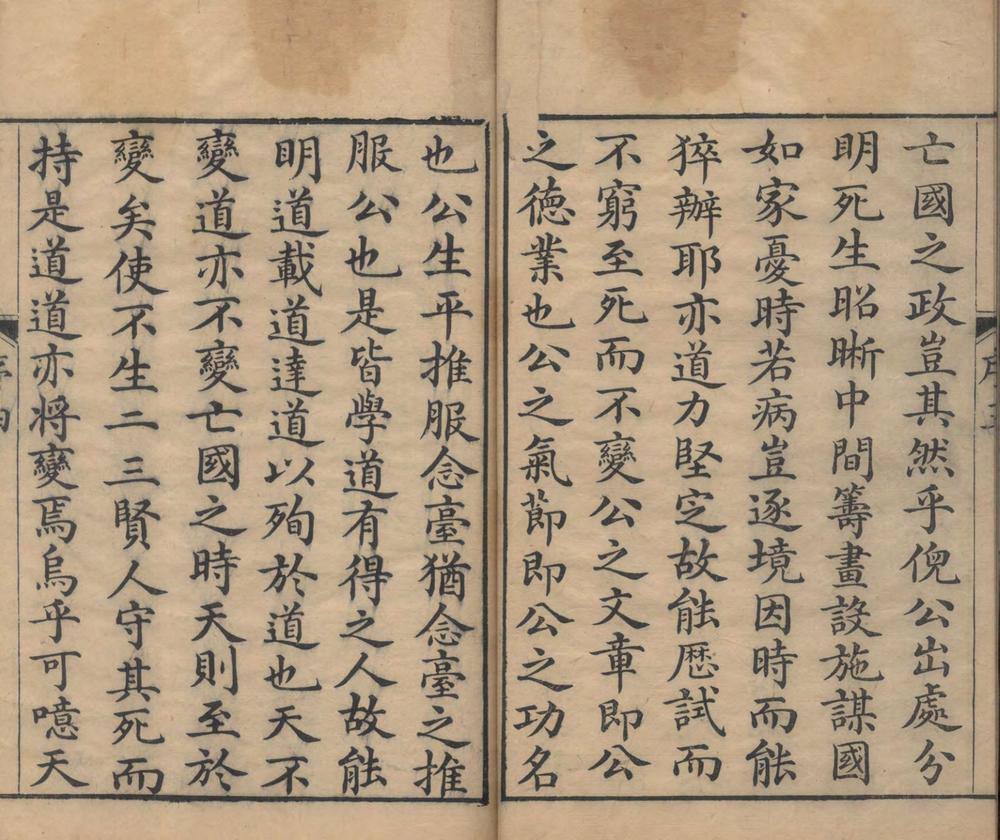 亡國之政豈其然乎俛公出處分
明死生昭晰中間籌畫設施謀國
如家憂時若病豈逐境因時而能
猝辦耶亦道力堅定故能歷試而
不窮至死而不變公之文章即公
之德業也公之氣節即公之功名
也公生平推服念臺猶念臺之推
服公也是皆學道有得之人故能
明道載道達道以殉於道也天不
變道亦不變亡國之時天則至於
變矣使不生二三賢人守其死而
持是道道亦將變焉烏乎可噫天